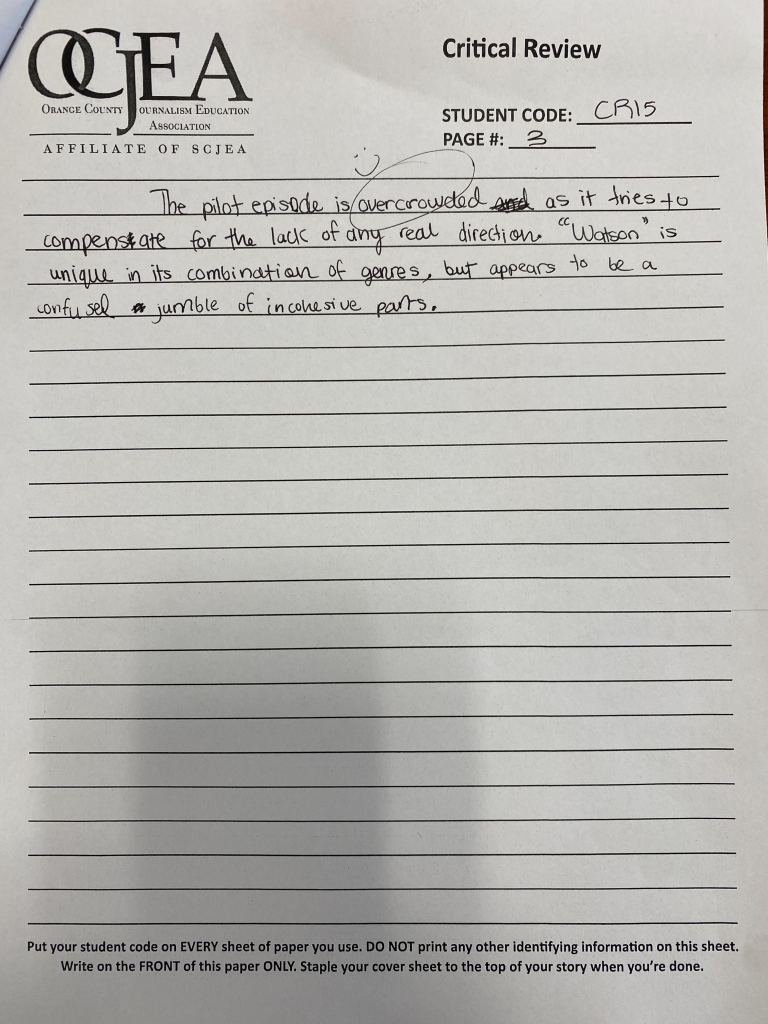 OCJEA
ORANGE COUNTY JOURNALISM EDUCATION
ASSOCIATION
AFFILIATE OF SCJEA
Critical Review
STUDENT CODE: CR15
PAGE #: 3
The pilot episode is overcrowded as it tries to
compensate for the lack of any real direction. "Watson" is
unique in its combination of genres, but appears to be a
confused jumble of incohesive parts.
Put your student code on EVERY sheet of paper you use. DO NOT print any other identifying information on this sheet.
Write on the FRONT of this paper ONLY. Staple your cover sheet to the top of your story when you're done.